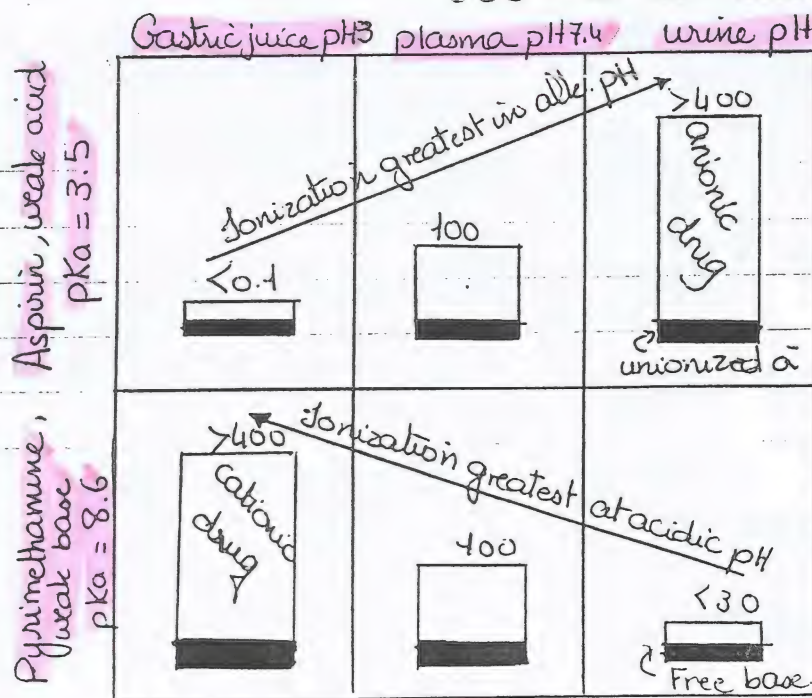 Gastric juice pH3 plasma pH7.4 urine pH
Aspirin, weak acid
pKa = 3.5
Ionization greatest in alk. pH
<0.1
100
>400
anionic
drug
unionized a
Pyrimethamine,
weak base
pKa = 8.6
Ionization greatest at acidic pH
>400
cationic
drug
100
<30
Free base